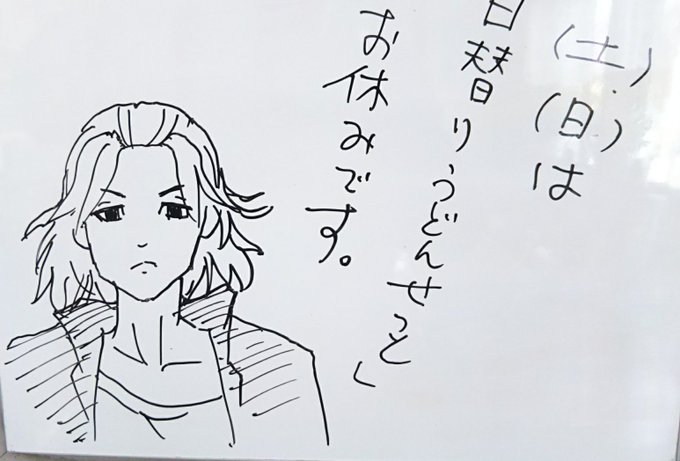 (土)・(日)は
日替りうどんせっと」
お休みです。